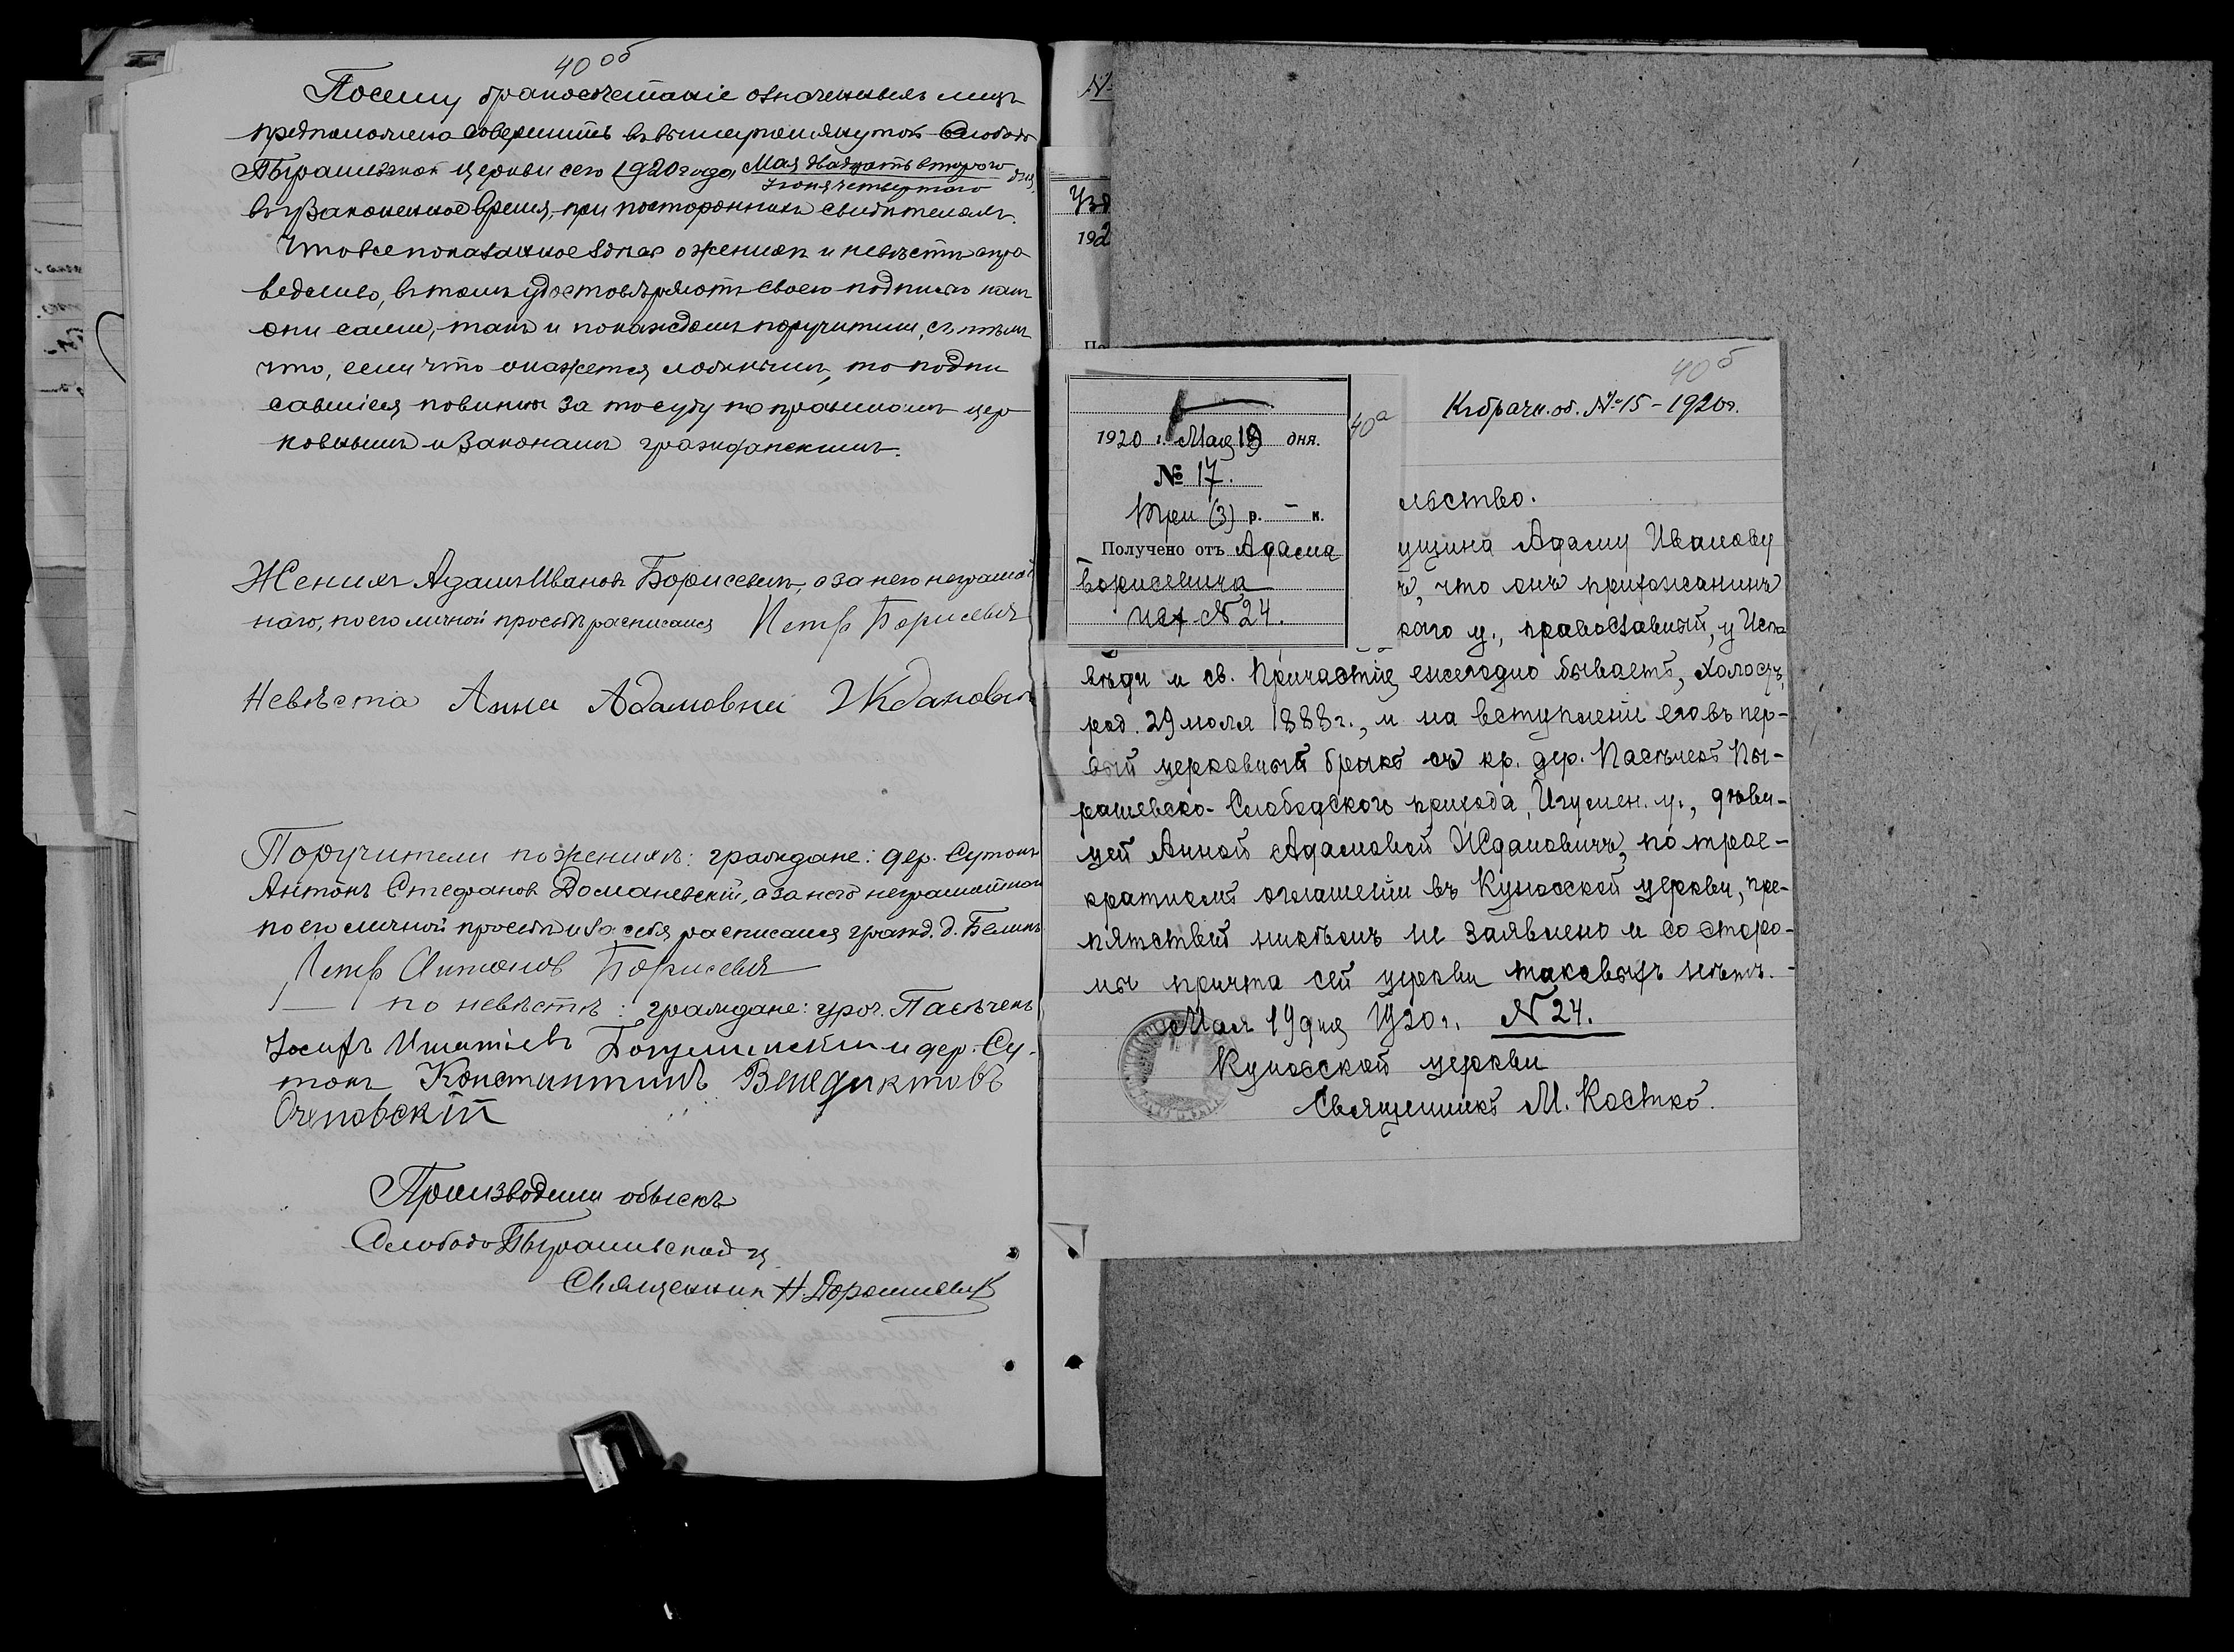 40 об
Посему бракосочетаніе означенныхъ лицъ
предположено совершить въ вышеупомянутой Слободо
Пырашевской церкви сего 1920 года Мая двадцать второго
Іюня четвертаго дня
въ узаконенное время, при постороннихъ свидѣтеляхъ.
Что все показанное здѣсь о женихѣ и невѣстѣ спра
ведливо, въ томъ удостовѣряютъ своею подписью какъ
они сами, такъ и по каждомъ поручители, съ тѣмъ
что, если что окажется ложнымъ, то подпи
савшіеся повинны за то суду по правиламъ цер
ковнымъ и законамъ гражданскимъ.
Женихъ Адамъ Ивановъ Борисевичъ, а за него неграмот
наго, по его личной просьбѣ расписался Петръ Борисевич
Невѣста Анна Адамовна Жданович
Поручители по женихѣ: граждане: дер. Сутокъ
Антонъ Стефановъ Доманевскій, а за него неграмотнаго
по его личной просьбѣ и за себя расписался гражд. д.
Петр Антонов Борисевич
— по невѣстѣ: граждане: уроч. Пасѣчекъ
Іосифъ Игнатіевъ и дер. Су-
токъ Константинъ Венедиктовъ
Очеповскій
Производили обыскъ
Слободо Пырашевской ц.
Священник Н. Дорошевич
N
Узд
192
По
40 а
1920 г. Мая 19 дня.
№ 17.
Три (3) р. — к.
Получено отъ Адама
Борисевича
исх. № 24.
40 б
Къ брачн. об. № 15 - 1920 г.
льство.
ущина Адаму Иванову
ъ, что онъ прихожанинъ
кого у., православный, у Испо
вѣди и св. Причастія ежегодно бываетъ, холостъ,
род. 29 іюля 1888 г., и на вступленіе его въ пер-
вый церковный бракъ съ кр. дер. Пасѣчекъ Пы-
рашевско-Слободского прихода, Игумен. у., дѣви-
цей Анной Адамовой Ждановичъ, по трое-
кратномъ оглашеніи въ Куносской церкви, пре-
пятствій никѣмъ не заявлено и со сторо-
ны причта сей церкви таковыхъ нѣтъ. -
Мая 19 дня 1920 г. № 24.
Куносской церкви
Священникъ М. Костко.